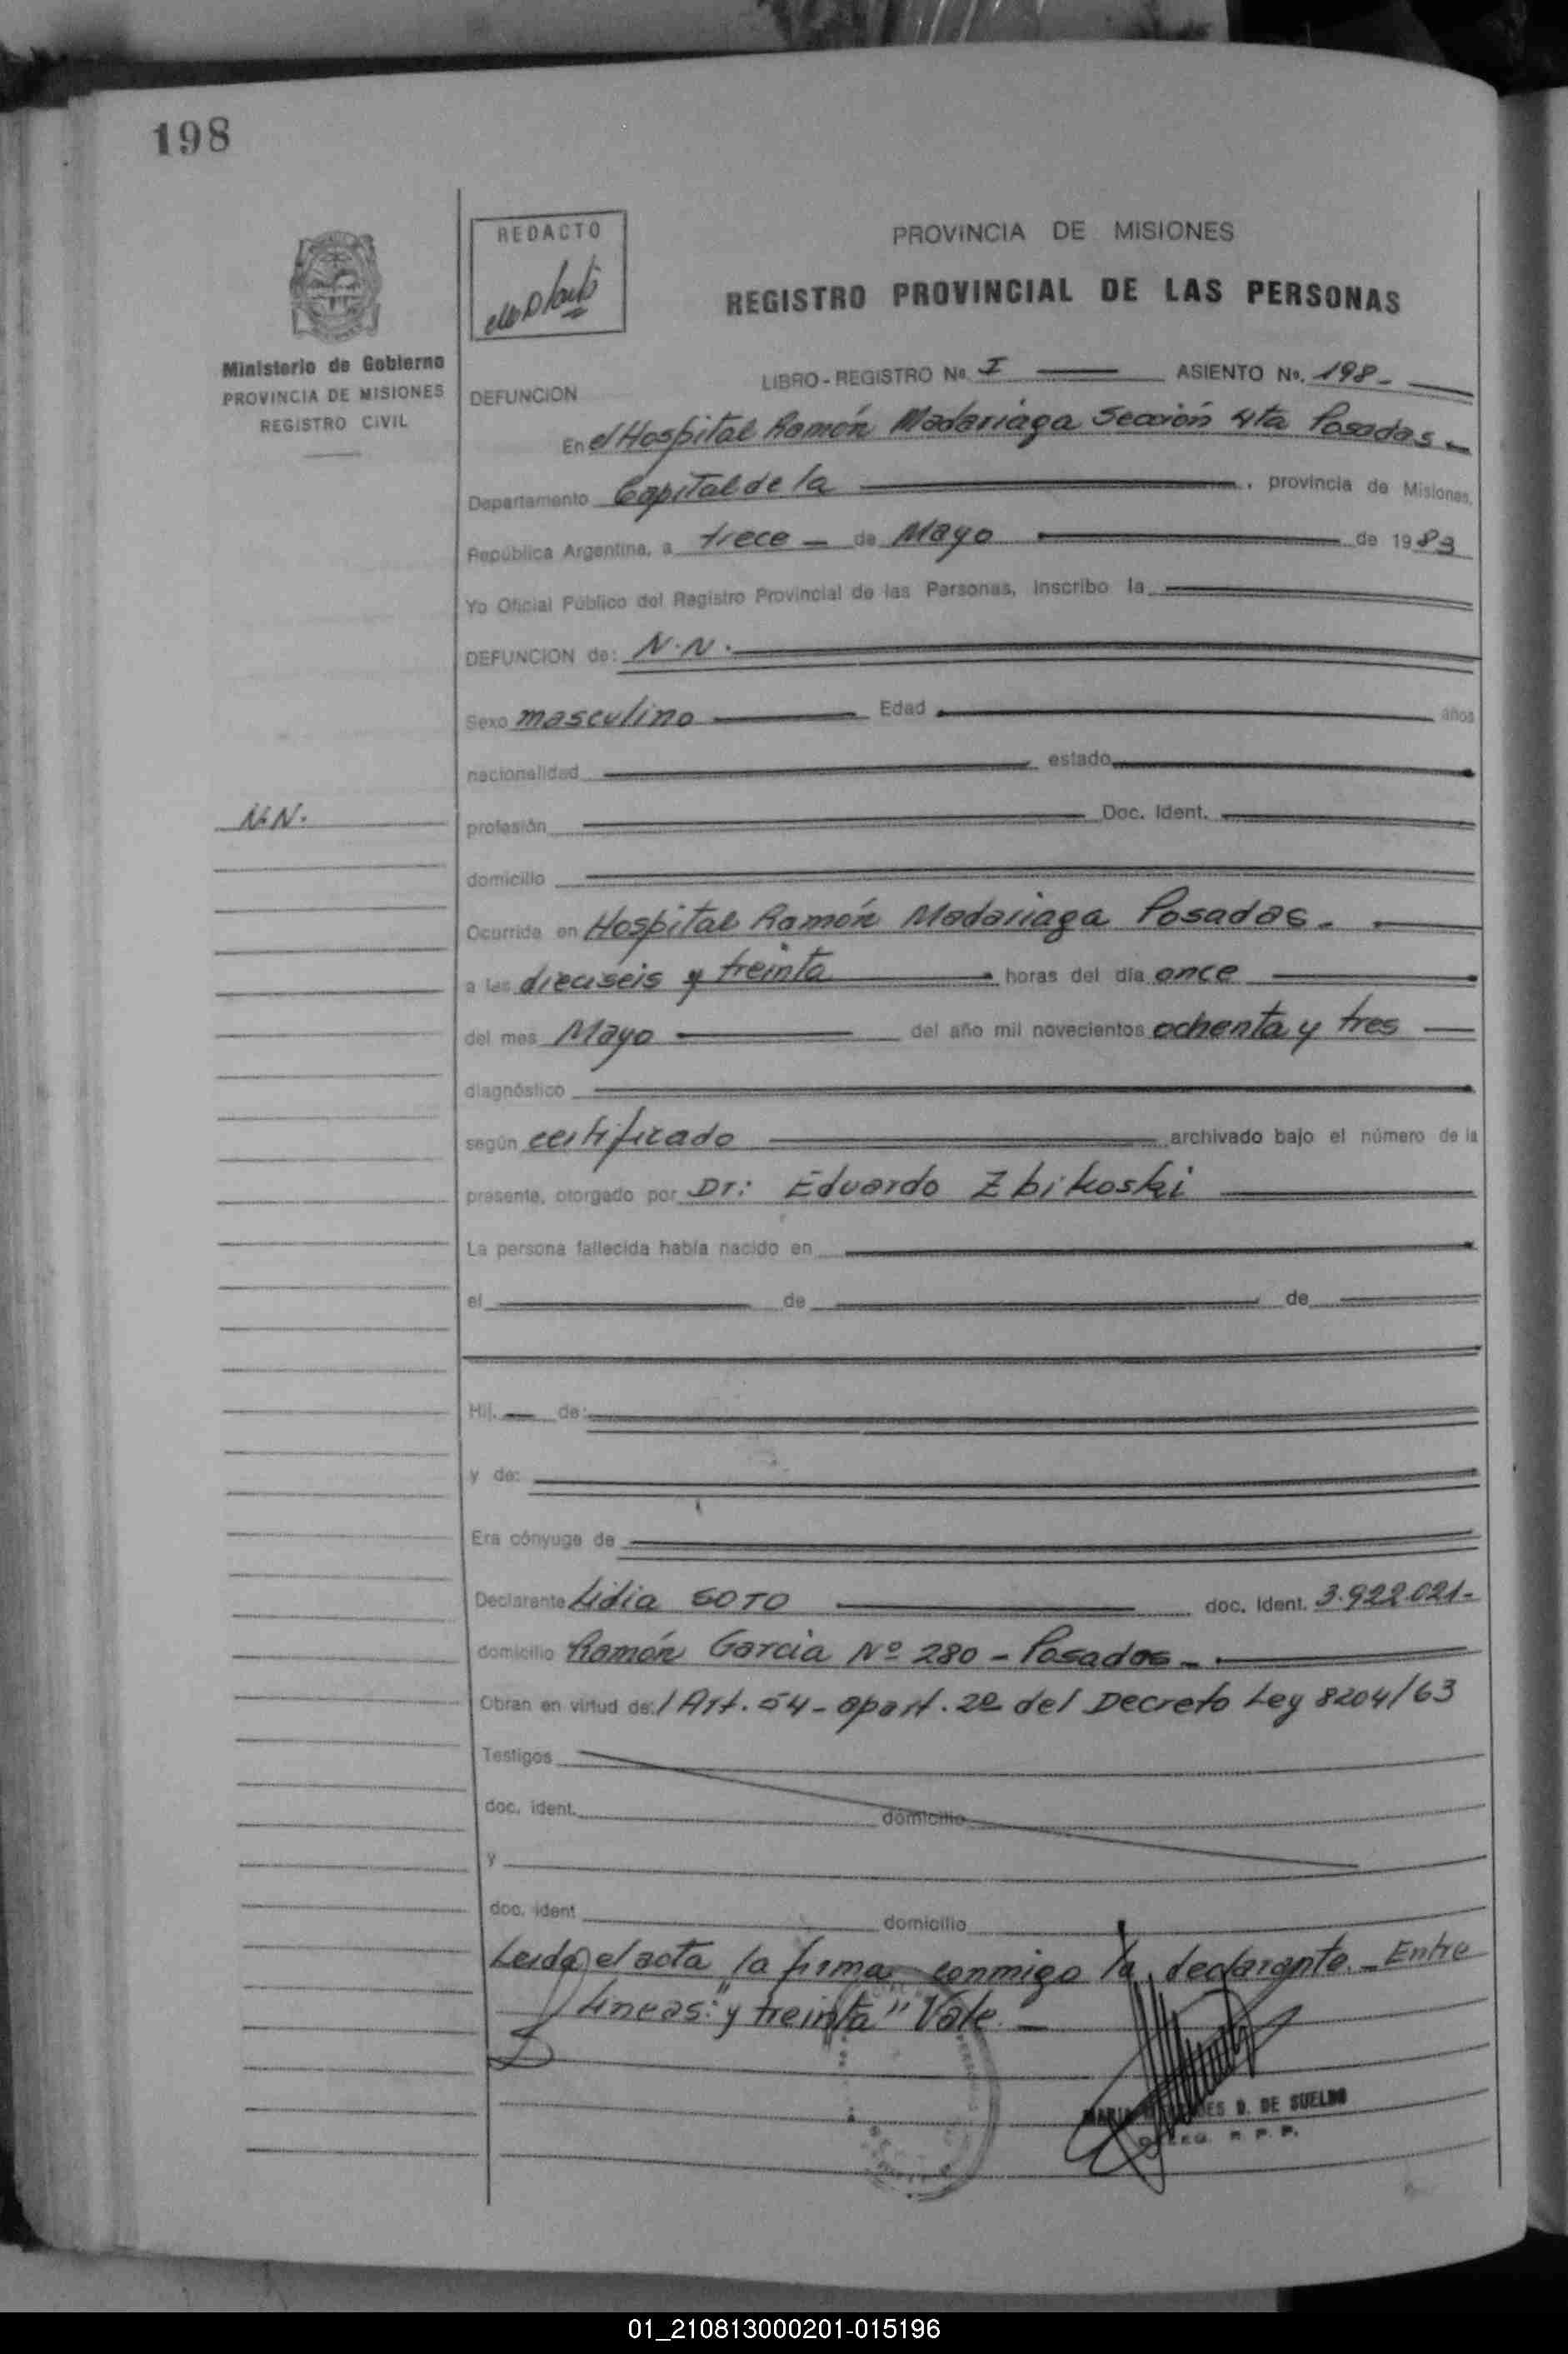 198
REDACTO
PROVINCIA DE MISIONES
REGISTRO PROVINCIAL DE LAS PERSONAS
Ministerio de Gobierno
PROVINCIA DE MISIONES
REGISTRO CIVIL
LIBRO - REGISTRO Nº. I ASIENTO Nº. 198-
DEFUNCION
En el Hospital Ramón Madariaga Sección 4ta Posadas -
Departamento Capital de la , provincia de Misiones,
República Argentina, a trece - de Mayo de 1983
Yo Oficial Público del Registro Provincial de las Personas, inscribo la
DEFUNCION de: N.N.
Sexo masculino Edad años
nacionalidad estado
N.N.
profesión Doc. Ident.
domicilio
Ocurrida en Hospital Ramón Madariaga Posadas.
a las dieciseis y treinta horas del día once
del mes Mayo del año mil novecientos ochenta y tres
diagnóstico
según certificado archivado bajo el número de la
presente, otorgado por Dr: Eduardo Zbikoski
La persona fallecida había nacido en
el de de
Hij. de:
y de:
Era cónyuge de
Declarante Lidia SOTO doc. Ident. 3.922.021-
domicilio Ramón Garcia Nº 280 - Posadas -
Obran en virtud de: l Art. 54 - apart. 2º del Decreto Ley 8204/63
Testigos
doc. ident. domicilio
y
doc. ident domicilio
Leida el acta la firma conmigo la declarante. - Entre
lineas: "y treinta" Vale. -
DE SUELDO
R. P. P.
01_210813000201-015196